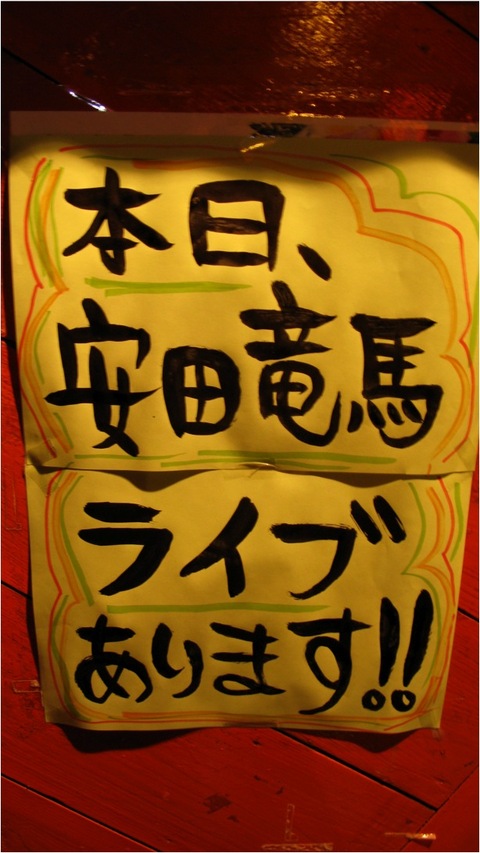 本日、
安田竜馬
ライブ
あります!!